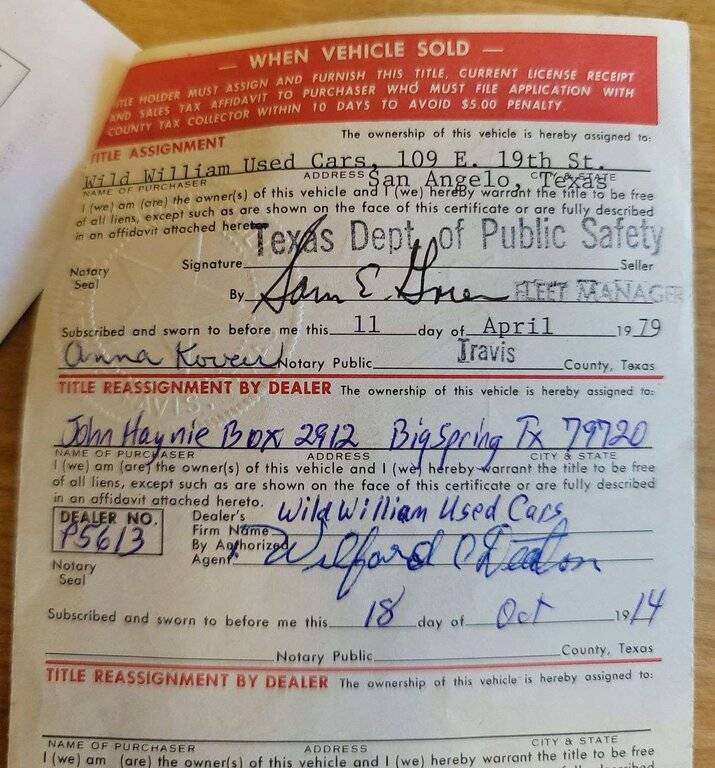 — WHEN VEHICLE SOLD —
TITLE HOLDER MUST ASSIGN AND FURNISH THIS TITLE, CURRENT LICENSE RECEIPT
AND SALES TAX AFFIDAVIT TO PURCHASER WHO MUST FILE APPLICATION WITH
COUNTY TAX COLLECTOR WITHIN 10 DAYS TO AVOID $5.00 PENALTY.
TITLE ASSIGNMENT The ownership of this vehicle is hereby assigned to:
Wild William Used Cars, 109 E. 19th St.
NAME OF PURCHASER ADDRESS CITY & STATE
San Angelo, Texas
I (we) am (are) the owner(s) of this vehicle and I (we) hereby warrant the title to be free
of all liens, except such as are shown on the face of this certificate or are fully described
in an affidavit attached hereto.
Texas Dept. of Public Safety
Signature Seller
Notary
Seal
By Sam E. FLEET MANAGER
Subscribed and sworn to before me this 11 day of April 1979
Anna Notary Public Travis County, Texas
TITLE REASSIGNMENT BY DEALER The ownership of this vehicle is hereby assigned to:
John Haynie Box 2912 Big Spring Tx 79720
NAME OF PURCHASER ADDRESS CITY & STATE
I (we) am (are) the owner(s) of this vehicle and I (we) hereby warrant the title to be free
of all liens, except such as are shown on the face of this certificate or are fully described
in an affidavit attached hereto.
DEALER NO.
P5613
Dealer's
Firm Name Wild William Used Cars
By Authorized
Agent Wilford C Deaton
Notary
Seal
Subscribed and sworn to before me this 18 day of Oct 1914
Notary Public County, Texas
TITLE REASSIGNMENT BY DEALER The ownership of this vehicle is hereby assigned to:
NAME OF PURCHASER ADDRESS CITY & STATE
I (we) am (are) the owner(s) of this vehicle and I (we) hereby warrant the title to be free